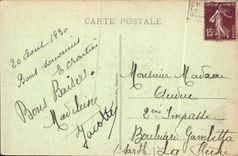 CARTE POSTALE
15
20 Aout 1930
Bons souvenirs
E Chartier
Bons Baisers
Madeleine
Jacotte
Monsieur Madame
Impasse
Boulevard Gambetta
Sarthe La Flèche